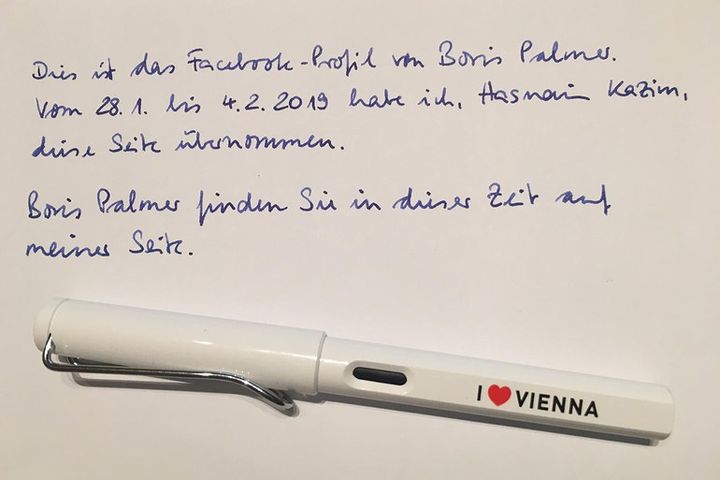 Dies ist das Facebook-Profil von Boris Palmer.
Vom 28.1. bis 4.2.2019 habe ich, Hasnain Kazim,
diese Seite übernommen.
Boris Palmer finden Sie in dieser Zeit auf
meiner Seite.
I ❤ VIENNA